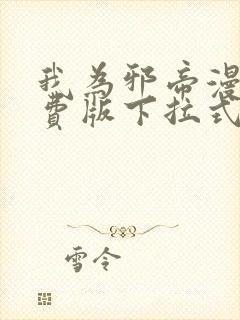 我为邪帝漫
费版下拉式
雪令